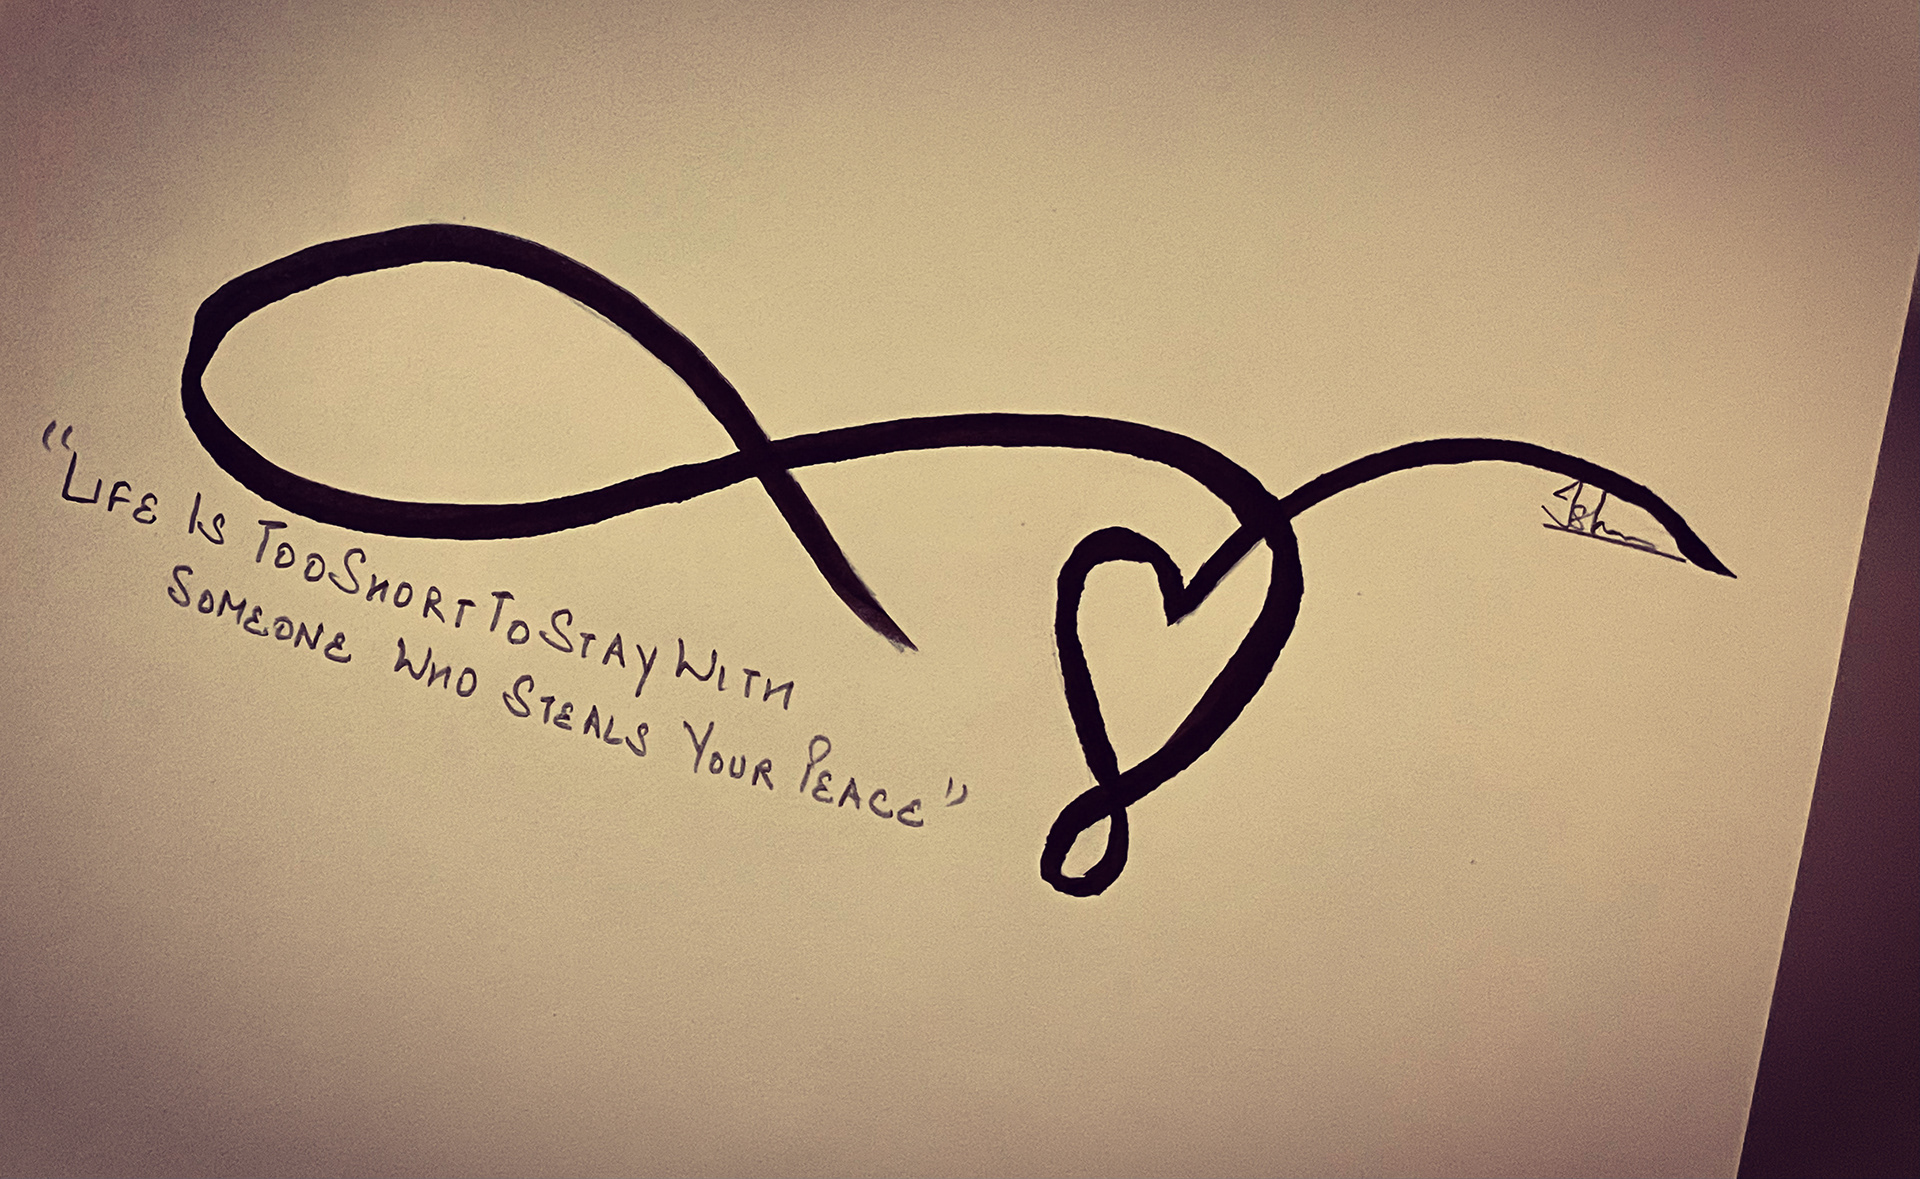 "LIFE IS TOO SHORT TO STAY WITH
SOMEONE WHO STEALS YOUR PEACE"